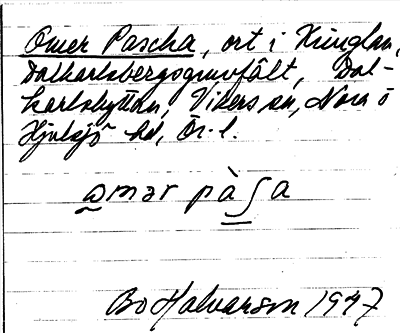 Omer Pascha, ort i Kringlan,
Dalkarlsbergsgruvfält, Dal-
karlshyttan, Vikers sn, Nora o
Hjulsjö bd, Ör. l.
omər pàʃa
Bo Halvarson 1947